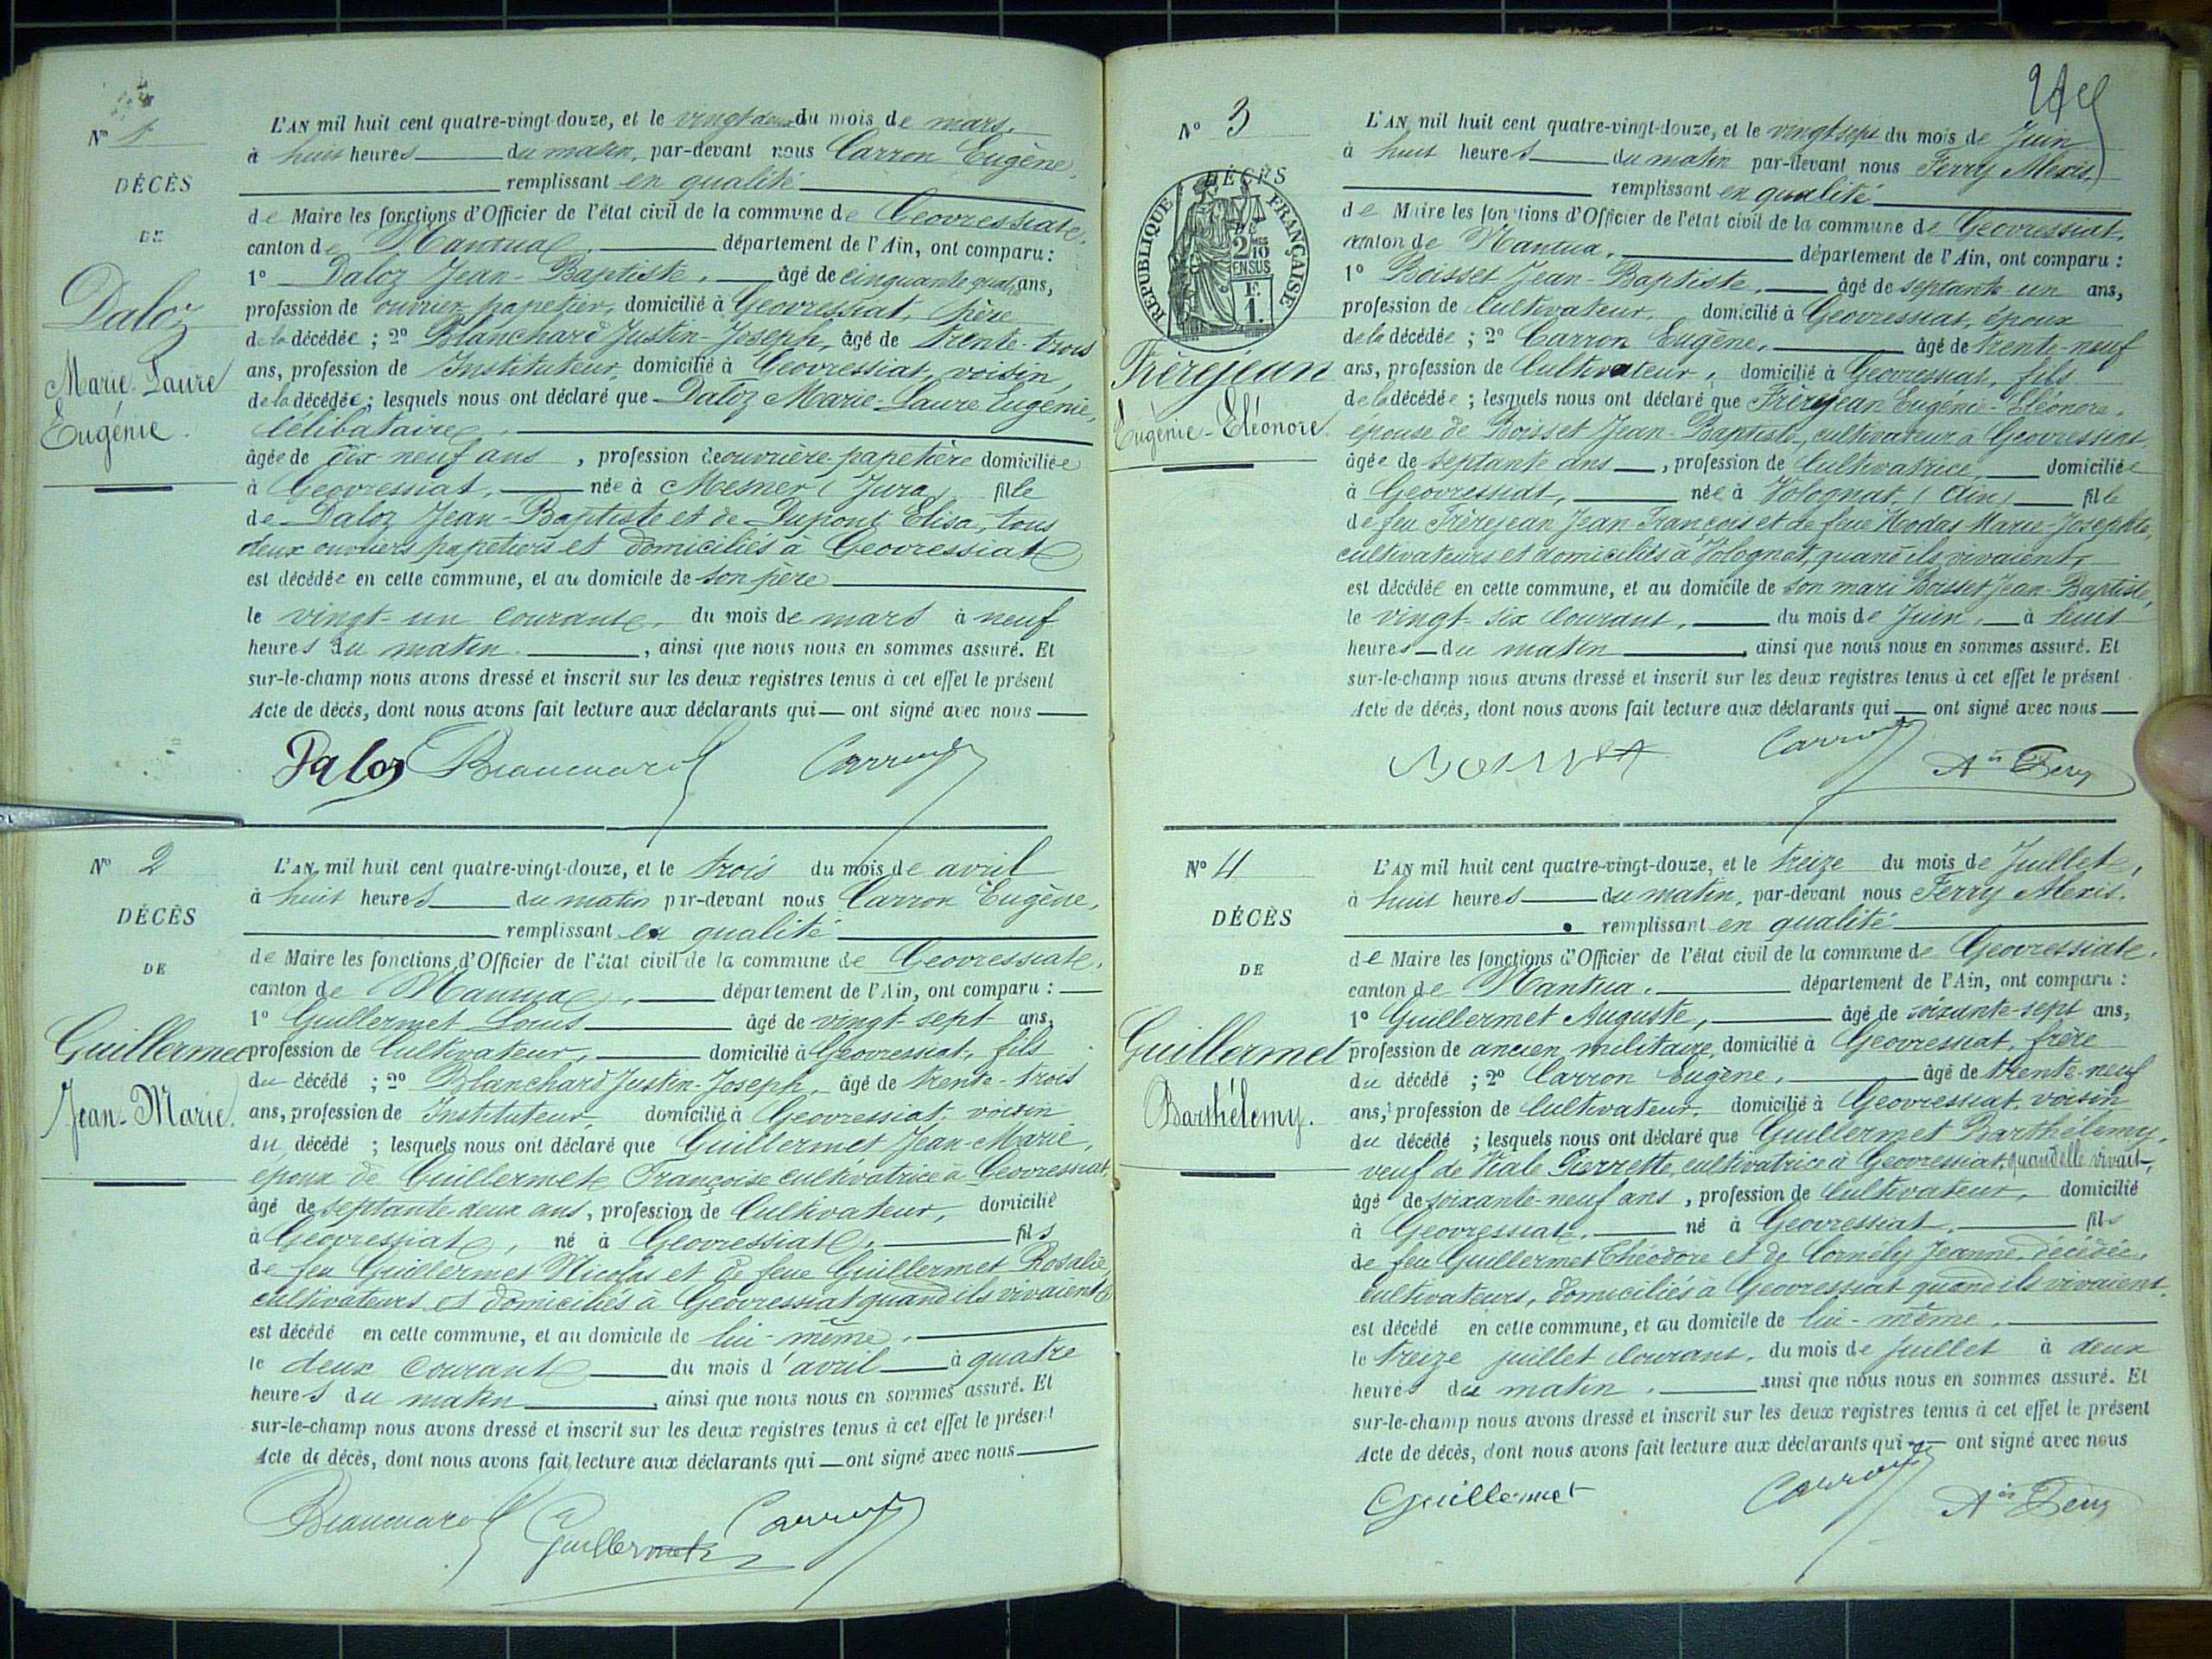 N° 1
DÉCÈS
DE
Daloz
Marie-Laure
Eugénie.
L'AN mil huit cent quatre-vingt-douze, et le vingt-deux du mois de mars,
à huit heures du matin, par-devant nous Carron Eugène,
remplissant en qualité
de Maire les fonctions d'Officier de l'état civil de la commune de Geovressiat,
canton de Nantua, département de l'Ain, ont comparu :
1° Daloz Jean-Baptiste, âgé de cinquante quatre ans,
profession de ouvrier papetier, domicilié à Geovressiat, père
de la décédée ; 2° Blanchard Justin-Joseph, âgé de trente-trois
ans, profession de Instituteur, domicilié à Geovressiat, voisin,
de la décédée ; lesquels nous ont déclaré que Daloz Marie-Laure Eugénie,
célibataire,
âgée de dix-neuf ans, profession de ouvrière papetière domiciliée
à Geovressiat, née à Mesner (Jura) fille
de Daloz Jean-Baptiste et de Dupont Elisa, tous
deux ouvriers papetiers et domiciliés à Geovressiat
est décédée en cette commune, et au domicile de son père
le vingt-un courant, du mois de mars à neuf
heures du matin, ainsi que nous nous en sommes assuré. Et
sur-le-champ nous avons dressé et inscrit sur les deux registres tenus à cet effet le présent
Acte de décès, dont nous avons fait lecture aux déclarants qui ont signé avec nous
Daloz Blanchard Carron
N° 2
DÉCÈS
DE
Guillermet
Jean-Marie.
L'AN mil huit cent quatre-vingt-douze, et le trois du mois de avril
à huit heures du matin par-devant nous Carron Eugène,
remplissant en qualité
de Maire les fonctions d'Officier de l'état civil de la commune de Geovressiat,
canton de Nantua, département de l'Ain, ont comparu :
1° Guillermet Louis âgé de vingt-sept ans,
profession de Cultivateur, domicilié à Geovressiat, fils
du décédé ; 2° Blanchard Justin-Joseph, âgé de trente-trois
ans, profession de Instituteur, domicilié à Geovressiat, voisin
du décédé ; lesquels nous ont déclaré que Guillermet Jean-Marie,
époux de Guillermet Françoise cultivatrice à Geovressiat,
âgé de septante-deux ans, profession de Cultivateur, domicilié
à Geovressiat, né à Geovressiat, fils
de feu Guillermet Nicolas et de feue Guillermet Rosalie,
cultivateurs et domiciliés à Geovressiat quand ils vivaient
est décédé en cette commune, et au domicile de lui-même,
le deux courant du mois d'avril à quatre
heures du matin, ainsi que nous nous en sommes assuré. Et
sur-le-champ nous avons dressé et inscrit sur les deux registres tenus à cet effet le présent
Acte de décès, dont nous avons fait lecture aux déclarants qui ont signé avec nous
Blanchard Guillermet Carron
N° 3
DÉCÈS
RÉPUBLIQUE FRANÇAISE
2/10
EN SUS
F.
1.
Frèrejean
Eugénie-Eléonore.
L'AN mil huit cent quatre-vingt-douze, et le vingt-sept du mois de Juin
à huit heures du matin par-devant nous Ferry Alexis,
remplissant en qualité
de Maire les fonctions d'Officier de l'état civil de la commune de Geovressiat,
canton de Nantua, département de l'Ain, ont comparu :
1° Boisset Jean-Baptiste, âgé de septante un ans,
profession de Cultivateur, domicilié à Geovressiat, époux
de la décédée ; 2° Carron Eugène, âgé de trente-neuf
ans, profession de Cultivateur, domicilié à Geovressiat, fils
de la décédée ; lesquels nous ont déclaré que Frèrejean Eugénie-Eléonore,
épouse de Boisset Jean-Baptiste, cultivateur à Geovressiat
âgée de septante ans, profession de Cultivatrice, domiciliée
à Geovressiat, née à Volognat (Ain) fille
de feu Frèrejean Jean François et de feue Hodas Marie-Josephte,
cultivateurs et domiciliés à Volognat, quand ils vivaient,
est décédée en cette commune, et au domicile de son mari Boisset Jean-Baptiste,
le vingt-six courant, du mois de Juin, à huit
heures du matin, ainsi que nous nous en sommes assuré. Et
sur-le-champ nous avons dressé et inscrit sur les deux registres tenus à cet effet le présent
Acte de décès, dont nous avons fait lecture aux déclarants qui ont signé avec nous
Boisset Carron Ais Ferry
N° 4
DÉCÈS
DE
Guillermet
Barthélemy.
L'AN mil huit cent quatre-vingt-douze, et le treize du mois de Juillet,
à huit heures du matin, par-devant nous Ferry Alexis,
remplissant en qualité
de Maire les fonctions d'Officier de l'état civil de la commune de Geovressiat,
canton de Nantua, département de l'Ain, ont comparu :
1° Guillermet Auguste, âgé de soixante-sept ans,
profession de ancien militaire, domicilié à Geovressiat, frère
du décédé ; 2° Carron Eugène, âgé de trente-neuf
ans, profession de Cultivateur, domicilié à Geovressiat, voisin
du décédé ; lesquels nous ont déclaré que Guillermet Barthélemy,
veuf de Viale Pierrette, cultivatrice à Geovressiat, quand elle vivait,
âgé de soixante-neuf ans, profession de Cultivateur, domicilié
à Geovressiat, né à Geovressiat, fils
de feu Guillermet Théodore et de Cornély Jeanne, décédée,
cultivateurs, domiciliés à Geovressiat quand ils vivaient.
est décédé en cette commune, et au domicile de lui-même,
le treize juillet courant, du mois de juillet à deux
heures du matin, ainsi que nous nous en sommes assuré. Et
sur-le-champ nous avons dressé et inscrit sur les deux registres tenus à cet effet le présent
Acte de décès, dont nous avons fait lecture aux déclarants qui ont signé avec nous
Guillermet Carron Ais Ferry